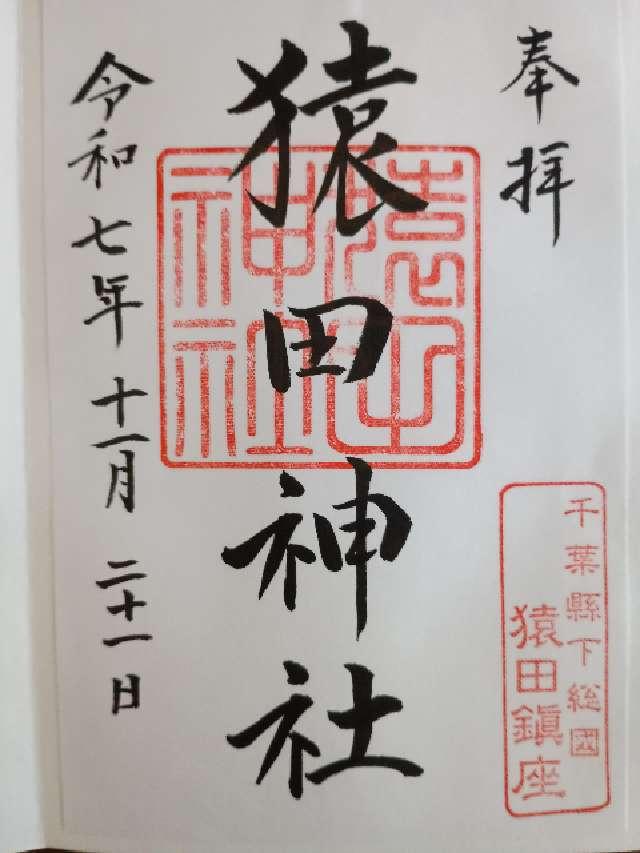 奉拝
千葉縣下総國
猿田鎮座
猿田神社
猿田神社
令和七年十一月二十一日